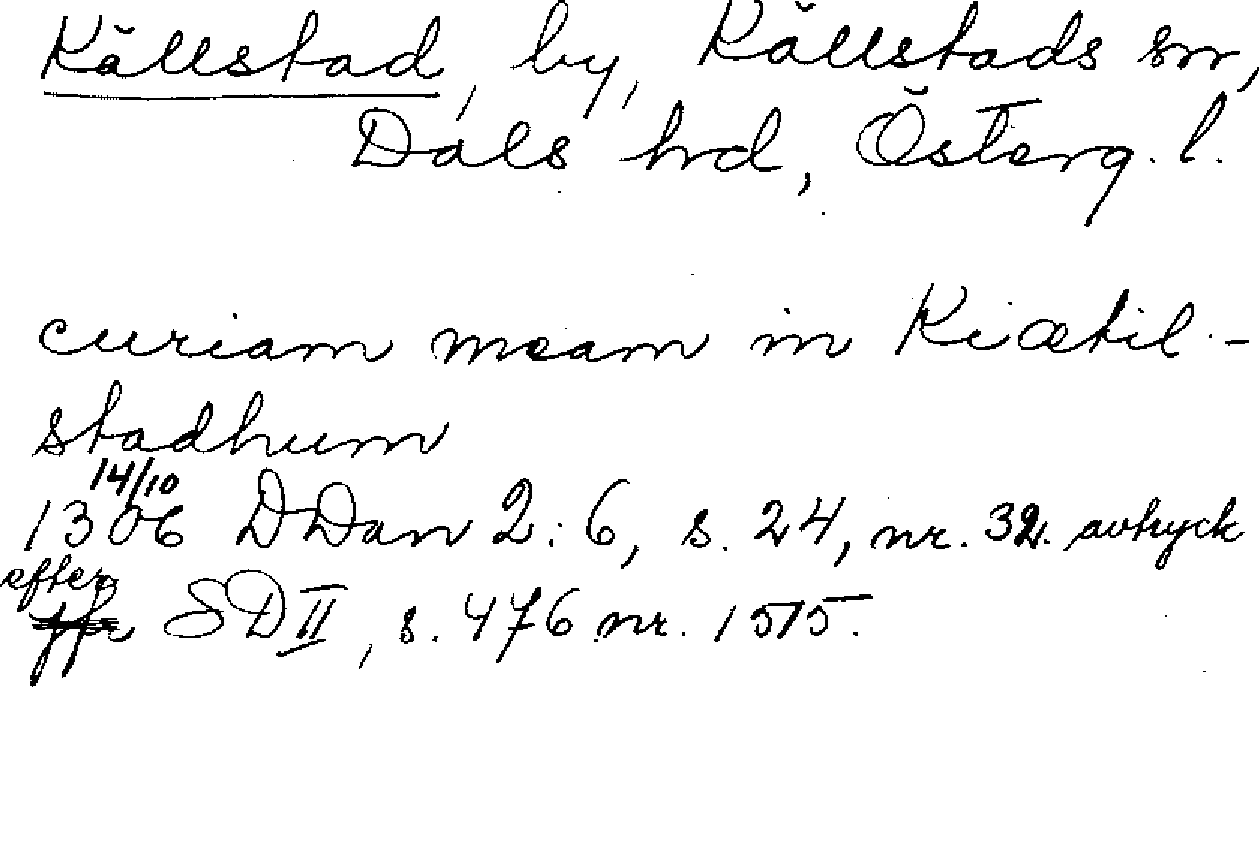 Källstad, by, Källstads sn,
Dals hrd, Österg. l.
curiam meam in Kiætil-
stadhum
14/10
1306 DDan 2:6, s. 24, nr. 32. avtryck
efter
SD II, s. 476 nr. 1515.